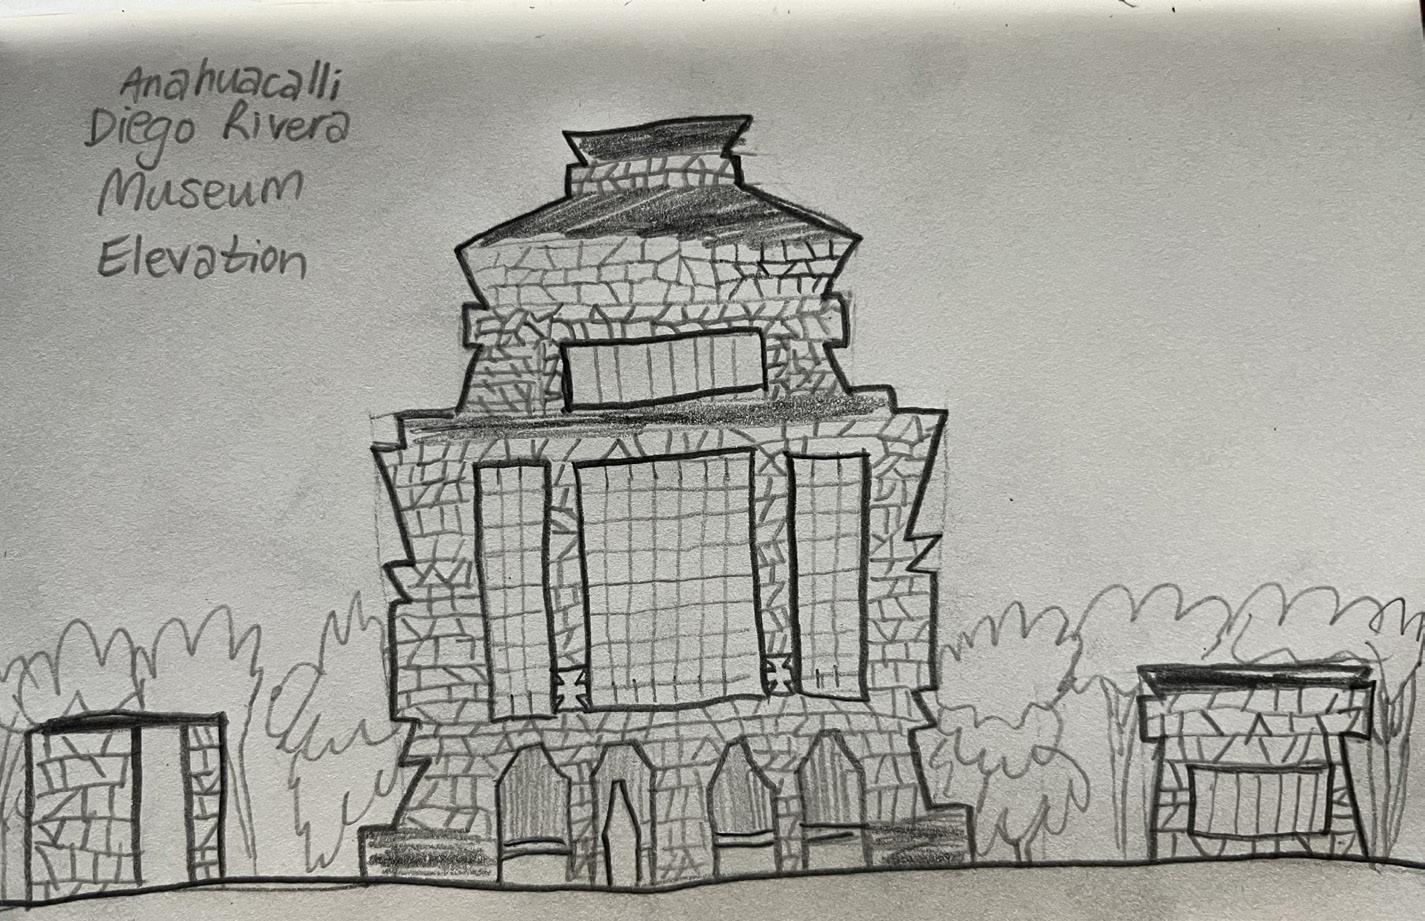 Anahuacalli
Diego Rivera
Museum
Elevation